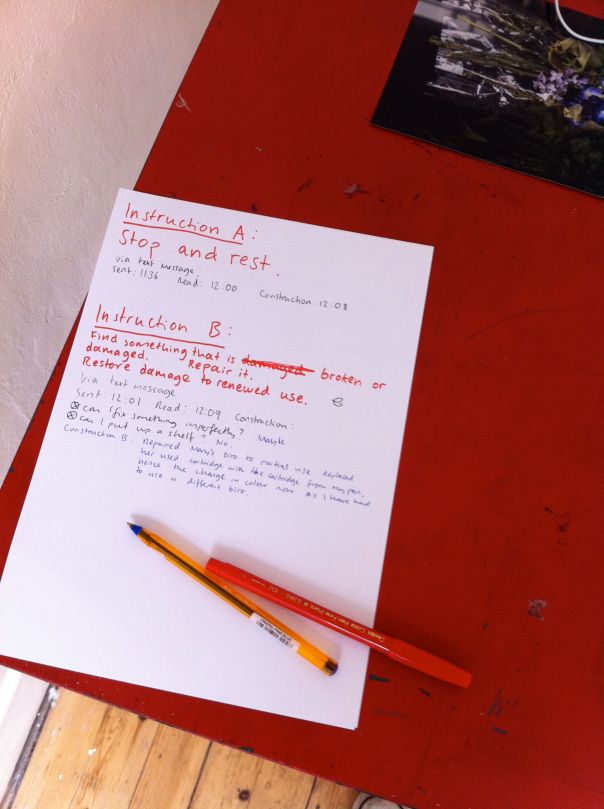 Instruction A:
Stop and rest.
via text message.
Sent: 1136 Read: 12:00 Construction: 12:08
Instruction B:
Find something that is damaged broken or
damaged. Repair it.
Restore damage to renewed use.
Via text message
Sent: 12:01 Read: 12:09 Construction:
can I fix something imperfectly? Maybe.
can I put up a shelf? No.
Construction B: Repaired Mary's biro to partial use. Replaced
her used cartridge with the cartridge from my pen,
hence the change in colour now as I have had
to use a different biro.